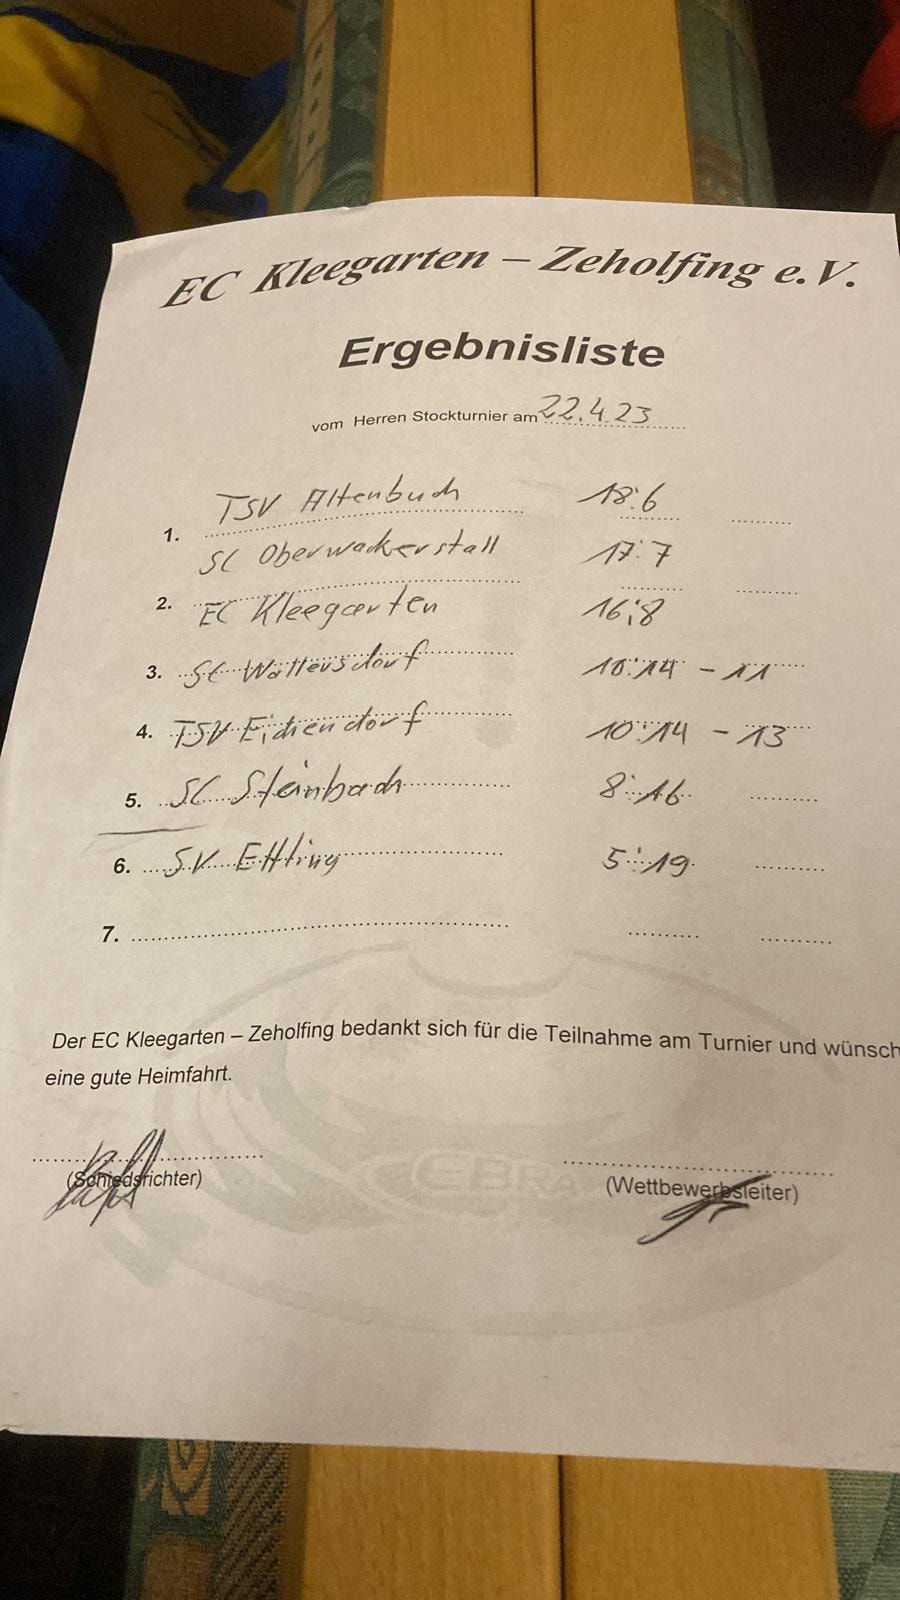 EC Kleegarten – Zeholfing e.V.
Ergebnisliste
vom Herren Stockturnier am 22.4.23
TSV Altenbuch 18:6
1.
SC Oberwackerstall 17:7
2.
EC Kleegarten 16:8
3. SC Wallersdorf 10:14 - 11
4. TSV Eichendorf 10:14 - 13
5. SC Steinbach 8:16
6. SV Ettling 5:19
7.
Der EC Kleegarten – Zeholfing bedankt sich für die Teilnahme am Turnier und wünsch
eine gute Heimfahrt.
(Schiedsrichter) (Wettbewerbsleiter)